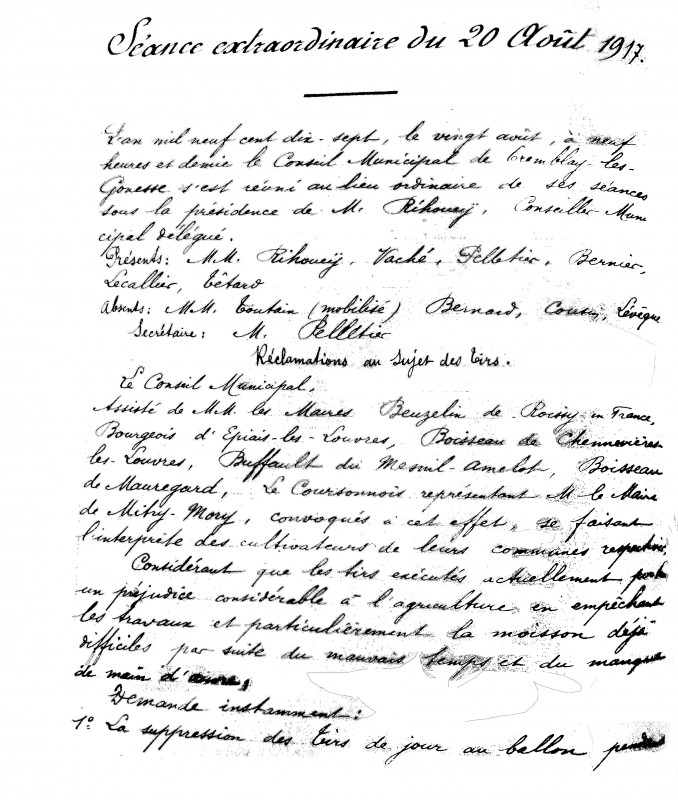 Séance extraordinaire du 20 Août 1917.
L'an mil neuf cent dix-sept, le vingt août, à neuf
heures et demie le Conseil Municipal de Tremblay-les-
Gonesse s'est réuni au lieu ordinaire de ses séances
sous la présidence de M. Rihouey, Conseiller Muni
cipal délégué.
Présents: M.M. Rihouey, Vaché, Pelletier, Bernier,
Lecallier, Têtard
Absents: M.M. Toutain (mobilisé) Bernard, Cousin, Lévêque
Secrétaire: M. Pelletier
Réclamations au sujet des Tirs.
Le Conseil Municipal,
Assisté de M.M. les Maires Beuzelin de Roissy-en-France,
Bourgeois d'Epiais-les-Louvres, Boisseau de Chennevières
les-Louvres, Buffault du Mesnil-Amelot, Boisseau
de Mauregard, Le Coursonnois représentant M. le Maire
de Mitry-Mory, convoqués à cet effet, se faisant
l'interprète des cultivateurs de leurs communes respectives,
Considérant que les tirs exécutés actuellement
un préjudice considérable à l'agriculture en empêchant
les travaux et particulièrement la moisson déjà
difficiles par suite du mauvais temps et du manque
de main d'œuvre,
Demande instamment:
1º La suppression des Tirs de jour au ballon